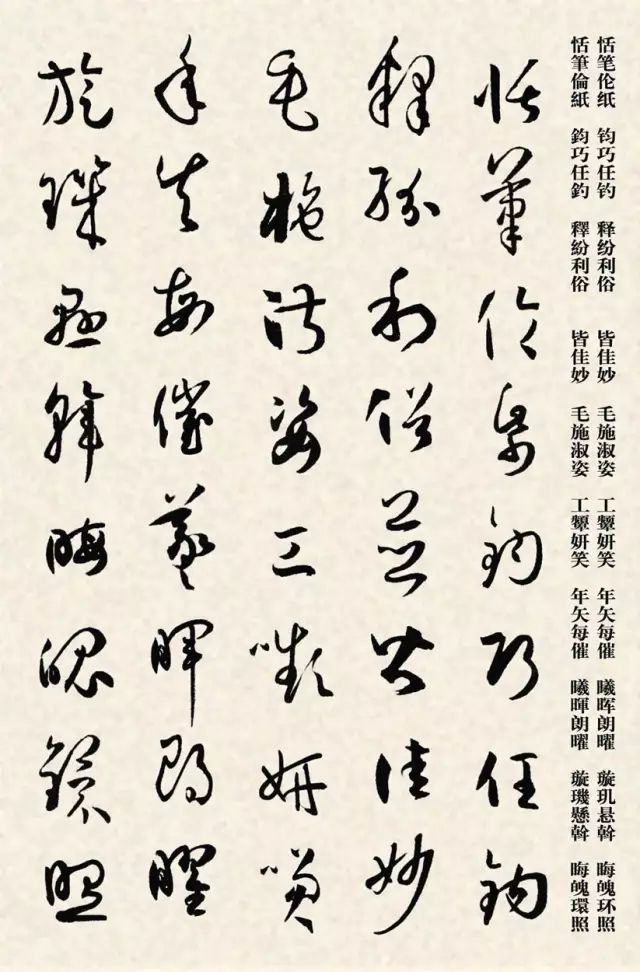 恬笔伦纸 钧巧任钓 释纷利俗 皆佳妙 毛施淑姿 工颦妍笑 年矢每催 曦晖朗曜 璇玑悬斡 晦魄环照
恬筆倫紙 鈞巧任釣 釋紛利俗 皆佳妙 毛施淑姿 工顰妍笑 年矢每催 曦暉朗曜 璇璣懸斡 晦魄環照
恬筆倫紙鈞巧任釣
釋紛利俗並皆佳妙
毛施淑姿工嚬妍笑
年矢每催羲暉朗曜
旋璣懸斡晦魄環照